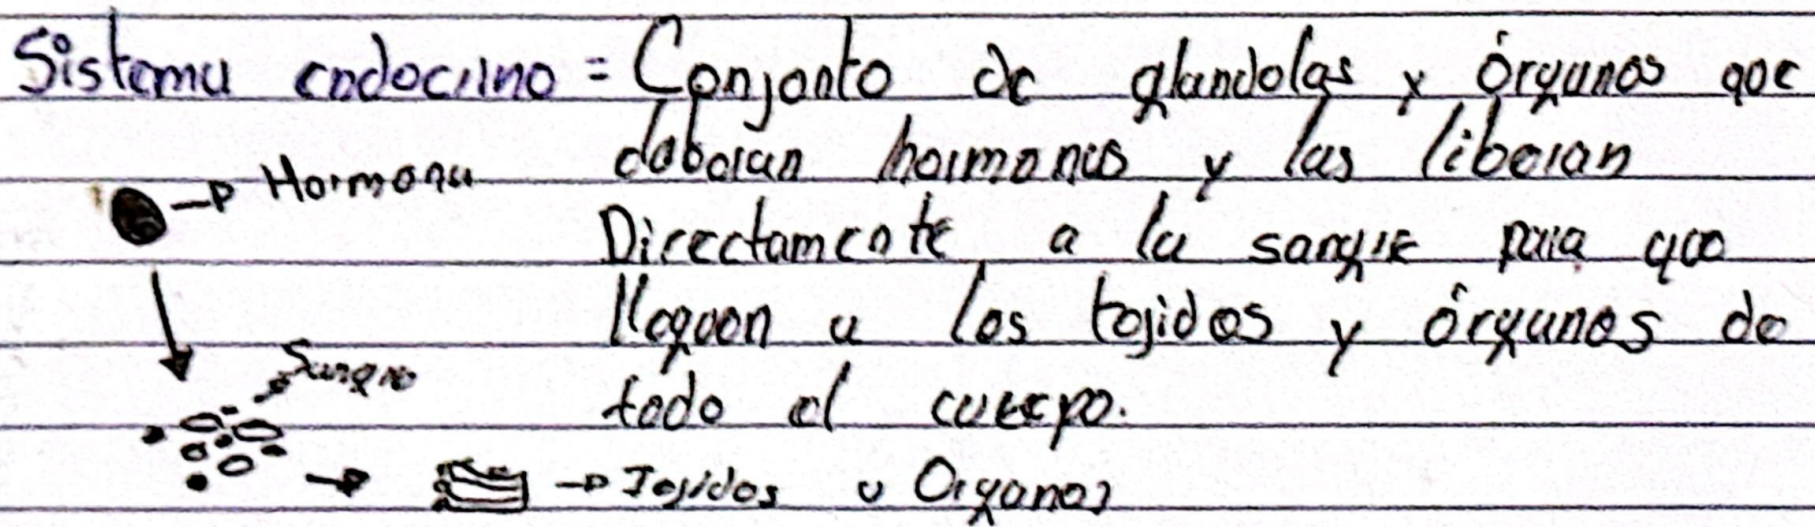 Sistema endocrino = Conjunto de glandulas y órganos que
elaboran hormonas y las liberan
→ Hormona
Directamente a la sangre para que
lleguen a los tejidos y órganos de
Sangre
todo el cuerpo.
→ → Tejidos u Organos